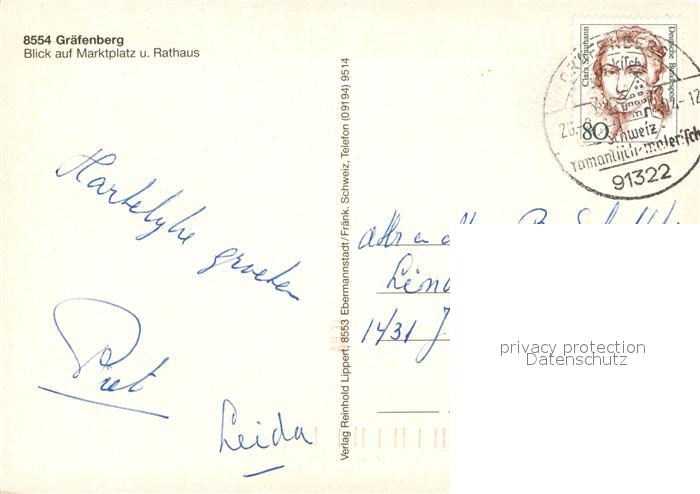 8554 Gräfenberg
Blick auf Marktplatz u. Rathaus
Hartelyke groeten
Piet
Leida
Verlag Reinhold Lippert, 8553 Ebermannstadt/Fränk. Schweiz, Telefon (09194) 9514
Clara Schumann
Deutsche Bundespost
80
GRÄFENBERG
Schweiz
romantisch-malerisch
91322
1431 J
privacy protection
Datenschutz